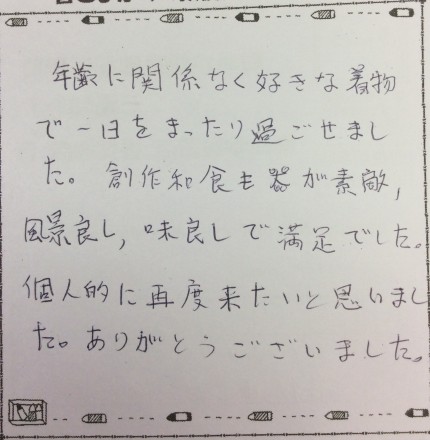 年齢に関係なく好きな着物
で一日をまったり過ごせまし
た。創作和食も器が素敵,
風景良し,味良しで満足でした。
個人的に再度来たいと思いまし
た。ありがとうございました。